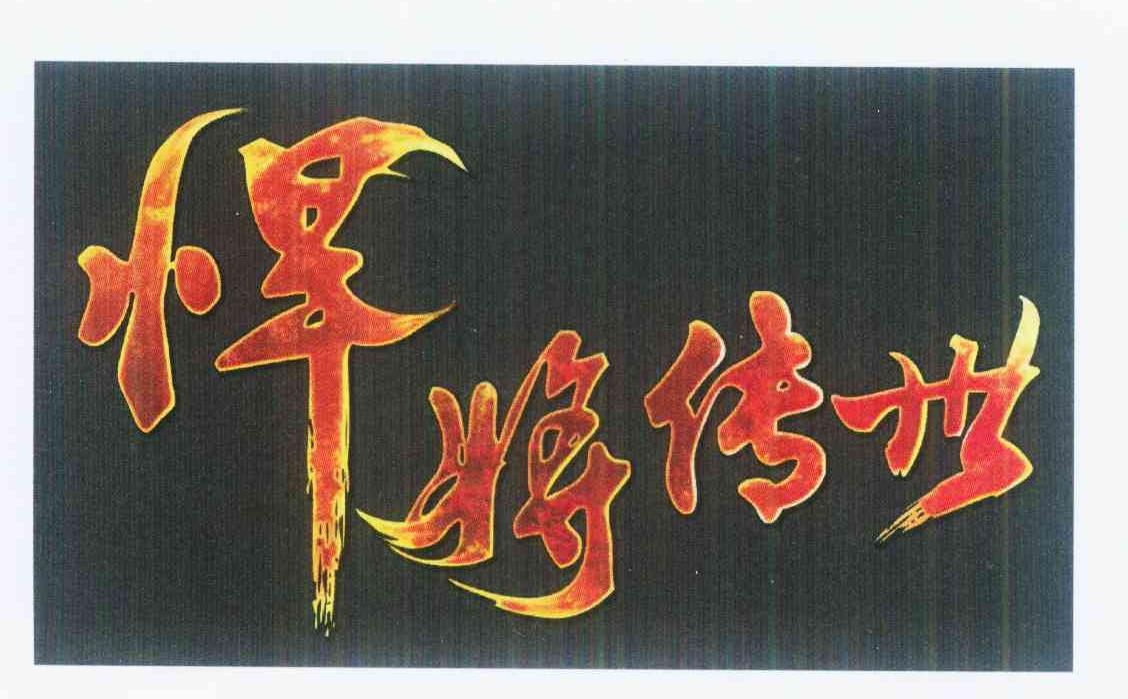 悍将传世